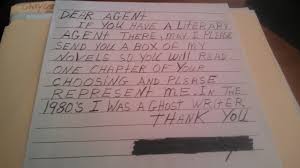 DEAR AGENT
IF YOU HAVE A LITERARY
AGENT THERE, MAY I PLEASE
SEND YOU A BOX OF MY
NOVELS SO YOU WILL READ
ONE CHAPTER OF YOUR
CHOOSING AND PLEASE
REPRESENT ME. IN THE
1980'S I WAS A GHOST WRITER
THANK YOU